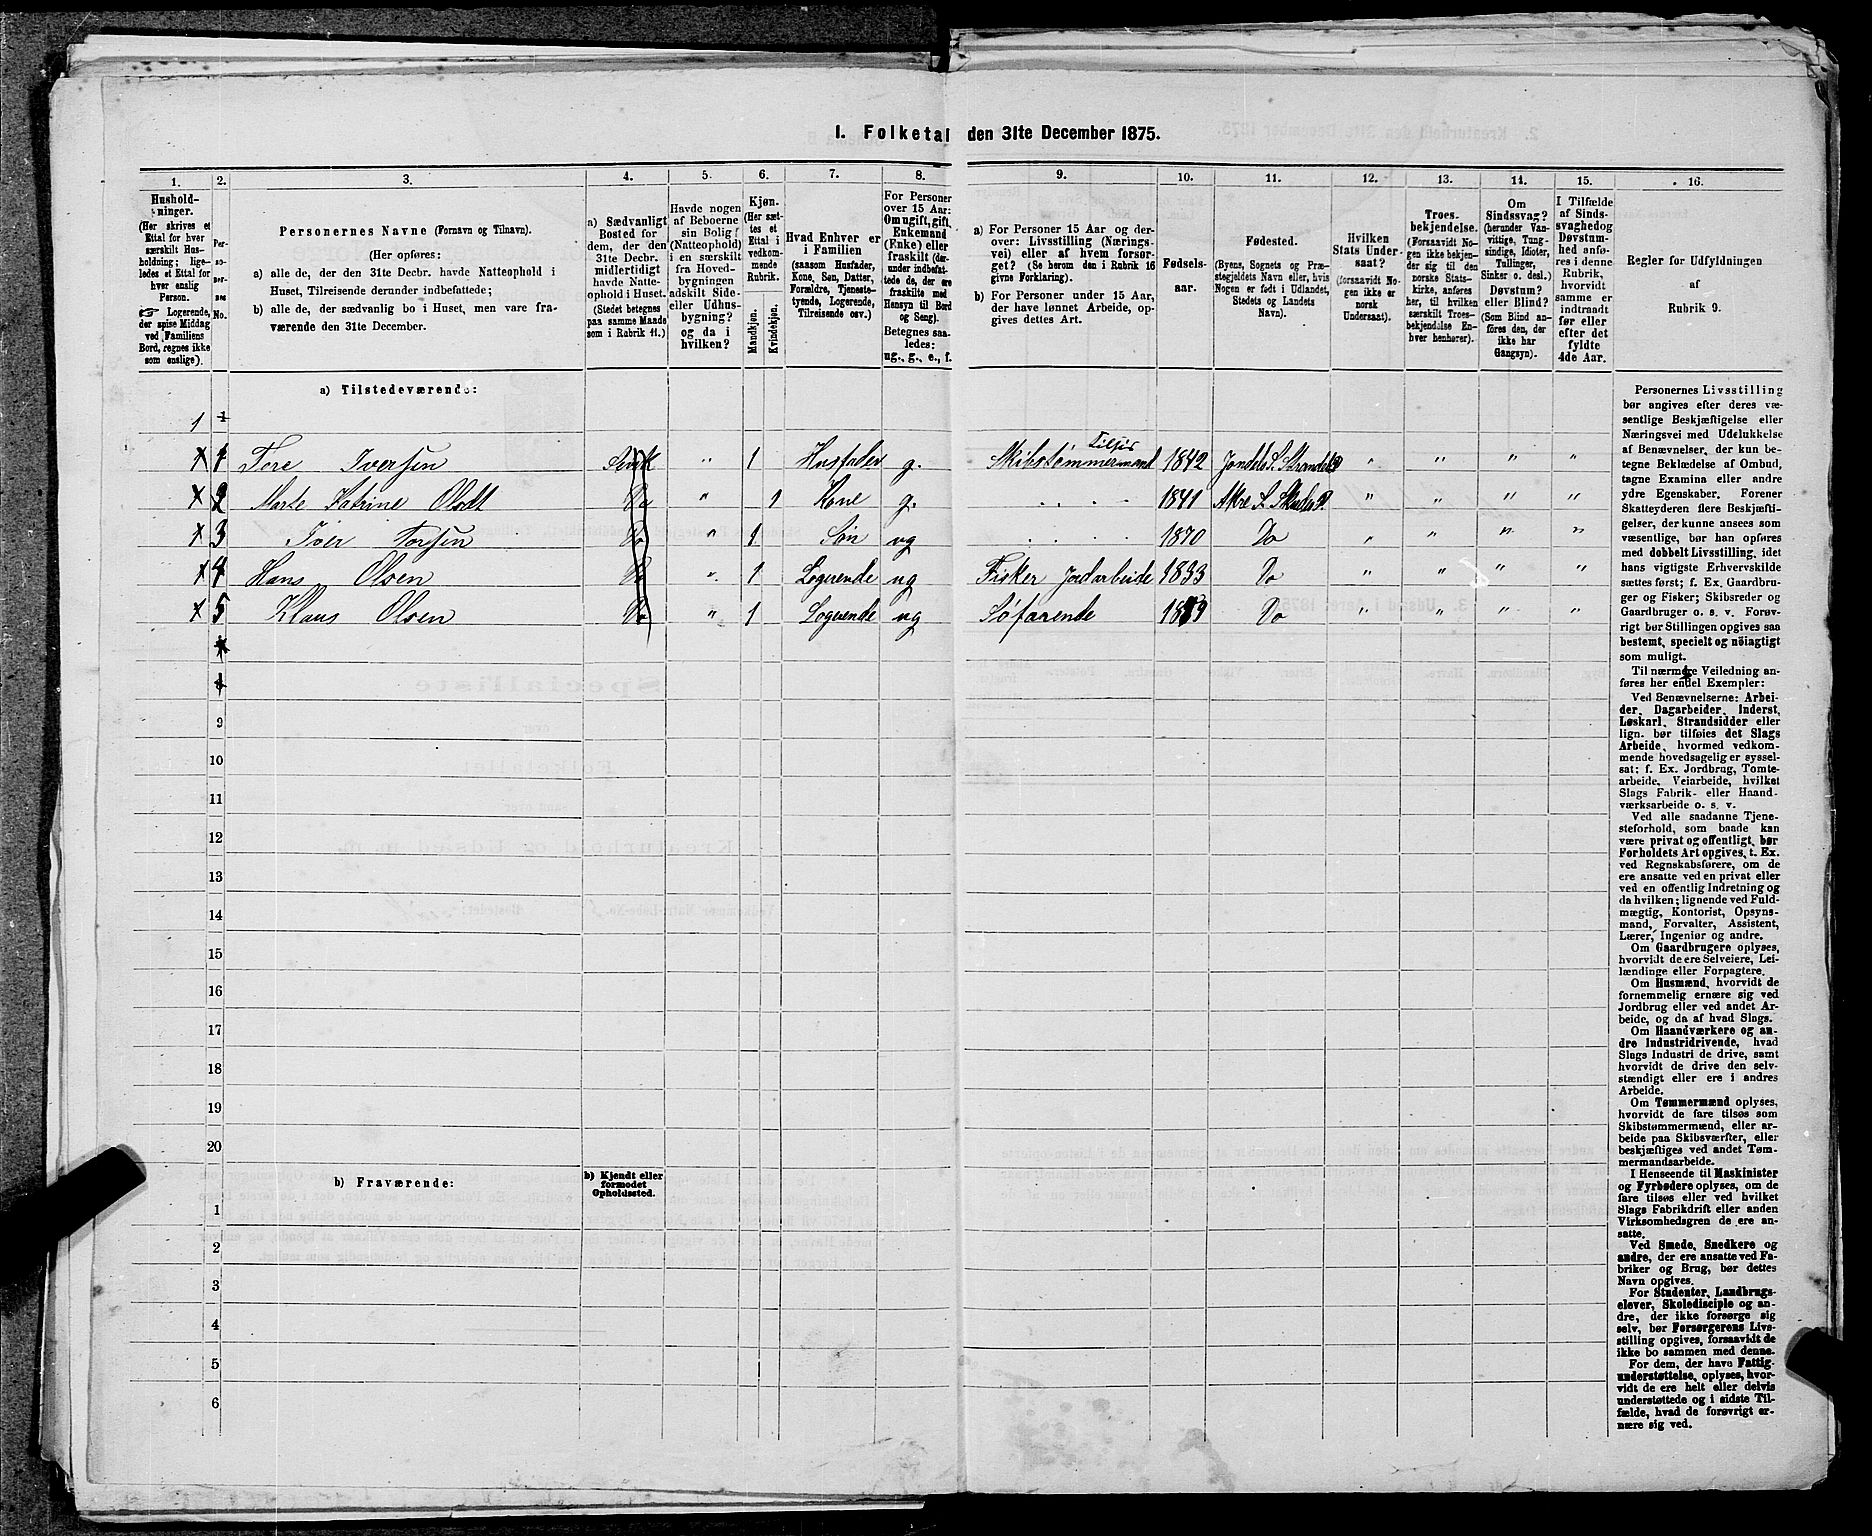 1. Folketal den 31te December 1875.
1. 2. 3. 4. 5. 6. 7. 8. 9. 10. 11. 12. 13. 14. 15. 16.
Hushold-
ninger.
(Her skrives et
Ettal for hver
særskilt Hus-
holdning; lige-
ledes et Ettal for
hver enslig
Person.
☞ Logerende,
der spise Middag
ved Familiens
Bord, regnes ikke
som enslige).
Per-
so-
ner-
nes
No.
Personernes Navne (Fornavn og Tilnavn).
(Her opføres:
a) alle de, der den 31te Decbr. havde Natteophold i
Huset, Tilreisende derunder indbefattede;
b) alle de, der sædvanlig bo i Huset, men vare fra-
værende den 31te December.
a) Sædvanligt
Bosted for
dem, der den
31te Decbr.
midlertidigt
havde Natte-
ophold i Huset.
(Stedet betegnes
paa samme Maade
som i Rubrik 11.)
Havde nogen
af Beboerne
sin Bolig
(Natteophold)
i en særskilt
fra Hoved-
bygningen
adskilt Side-
eller Udhus-
bygning?
og da i
hvilken?
Kjøn.
(Her sæt-
tes et
Ettal i
vedkom-
mende
Rubrik.
Mandkjøn.
Kvindekjøn.
Hvad Enhver er
i Familien
(saasom Husfader,
Kone, Søn, Datter,
Forældre, Tjeneste-
tyende, Logerende,
Tilreisende osv.)
For Personer
over 15 Aar:
Om ugift, gift,
Enkemand
(Enke) eller
fraskilt (der-
under indbefat-
tede de, der ere
fraskilte med
Hensyn til Bord
og Seng).
Betegnes saa-
ledes:
ug., g., e., f.
a) For Personer 15 Aar og der-
over: Livsstilling (Nærings-
vei) eller af hvem forsør-
get? (Se herom den i Rubrik 16
givne Forklaring).
b) For Personer under 15 Aar,
der have lønnet Arbeide, op-
gives dettes Art.
Fødsels-
aar.
Fødested.
(Byens, Sognets og Præ-
stegjeldets Navn eller, hvis
Nogen er født i Udlandet,
Stedets og Landets
Navn).
Hvilken
Stats Under-
saat?
(forsaavidt No-
gen ikke er
norsk
Undersaat).
Troes-
bekjendelse.
(Forsaavidt No-
gen ikke bekjen-
der sig til den
norske Stats-
kirke, anføres
her, til hvilken
særskilt Troes-
bekjendelse En-
hver henhører).
Om
Sindssvag?
(herunder Van-
vittige, Tung-
sindige, Idioter,
Tullinger,
Sinker o. desl.)
Døvstum?
eller Blind?
(Som Blind an-
føres den, der
ikke har
Gangsyn).
I Tilfælde
af Sinds-
svaghed og
Døvstum-
hed anfø-
res i denne
Rubrik,
hvorvidt
samme er
indtraadt
før eller
efter det
fyldte
4de Aar.
Regler for Udfyldningen
af
Rubrik 9.
a) Tilstedeværende:
1
1 Tore Iversen " 1 Husfader g. Skibstømmermand 1842 " " " "
2 Marte Katrine Do " 1 Kone g. 1841 " " " "
3 Iver Torsen Do " 1 Søn ug 1870 Do " " " "
4 Hans Olsen Do " 1 Logerende ug Fisker Jordarbeide 1833 Do " " " "
5 Klaus Olsen Do " 1 Logerende ug Søfarende Do " " " "
8
9
10
11
12
13
14
15
16
17
18
19
20
b) Fraværende:
b) Kjendt eller
formodet
Opholdssted.
1
2
3
4
5
6
Personernes Livsstilling
bør angives efter deres væ-
sentlige Beskjæftigelse eller
Næringsvei med Udelukkelse
af Benævnelser, der kun be-
tegne Beklædelse af Ombud,
tagne Examina eller andre
ydre Egenskaber. Forener
Skatteyderen flere Beskjæfti-
gelser, der kunne ansees som
væsentlige, bør han opføres
med dobbelt Livsstilling, idet
hans vigtigste Erhvervskilde
sættes først; f. Ex. Gaardbru-
ger og Fisker; Skibsreder og
Gaardbruger o. s. v. Forøv-
rigt bør Stillingen opgives saa
bestemt, specielt og nöiagtigt
som muligt.
Til nærmere Veiledning an-
føres her endel Exempler:
Ved Benævnelserne: Arbei-
der, Dagarbeider, Inderst,
Løskarl, Strandsidder eller
lign. bør tilføies det Slags
Arbeide, hvormed vedkom-
mende hovedsagelig er syssel-
sat; f. Ex. Jordbrug, Tomte-
arbeide, Veiarbeide, hvilket
Slags Fabrik- eller Haand-
værksarbeide o. s. v.
Ved alle saadanne Tjene-
steforhold, som baade kan
være privat og offentligt, bør
Forholdets Art opgives, t. Ex.
ved Regnskabsførere, om de
ere ansatte ved en privat eller
ved en offentlig Indretning og
da hvilken; lignende ved Fuld-
mægtig, Kontorist, Opsyns-
mand, Forvalter, Assistent,
Lærer, Ingeniør og andre.
Om Gaardbrugere oplyses,
hvorvidt de ere Selveiere, Lei-
lændinge eller Forpagtere.
Om Husmænd, hvorvidt de
fornemmelig ernære sig ved
Jordbrug eller ved andet Ar-
beide, og da af hvad Slags.
Om Haandværkere og an-
dre Industridrivende, hvad
Slags Industri de drive, samt
hvorvidt de drive den selv-
stændigt eller ere i andres
Arbeide.
Om Tømmermænd oplyses,
hvorvidt de fare tilsøs som
Skibstømmermænd, eller ar-
beide paa Skibsværfter, eller
beskjæftiges ved andet Tøm-
mermandsarbeide.
I Henseende til Maskinister
og Fyrbødere oplyses, om de
fare tilsøs eller ved hvilket
Slags Fabrikdrift eller anden
Virksomhedsgren de ere an-
satte.
Ved Smede, Snedkere og
andre, der ere ansatte ved Fa-
briker og Brug, bør dettes
Navn opgives.
For Studenter, Landbrugs-
elever, Skoledisciple og an-
dre, der ikke forsørge sig
selv, bør Forsørgerens Livs-
stilling opgives, forsaavidt de
ikke bo sammen med denne.
For dem, der have Fattig-
understøttelse, oplyses, hvor-
vidt de ere helt eller delvis
understøttede og i sidste Til-
fælde, hvad de forøvrigt er-
nære sig ved.